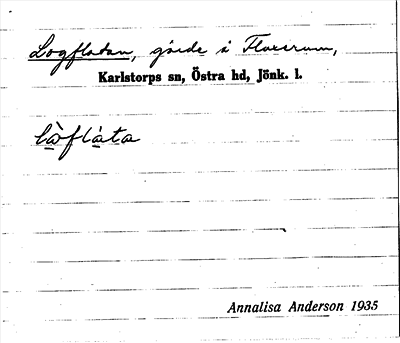 Logflatan, gärde å Flaxerum,
Karlstorps sn, Östra hd, Jönk. l.
làflàta
Annalisa Anderson 1935